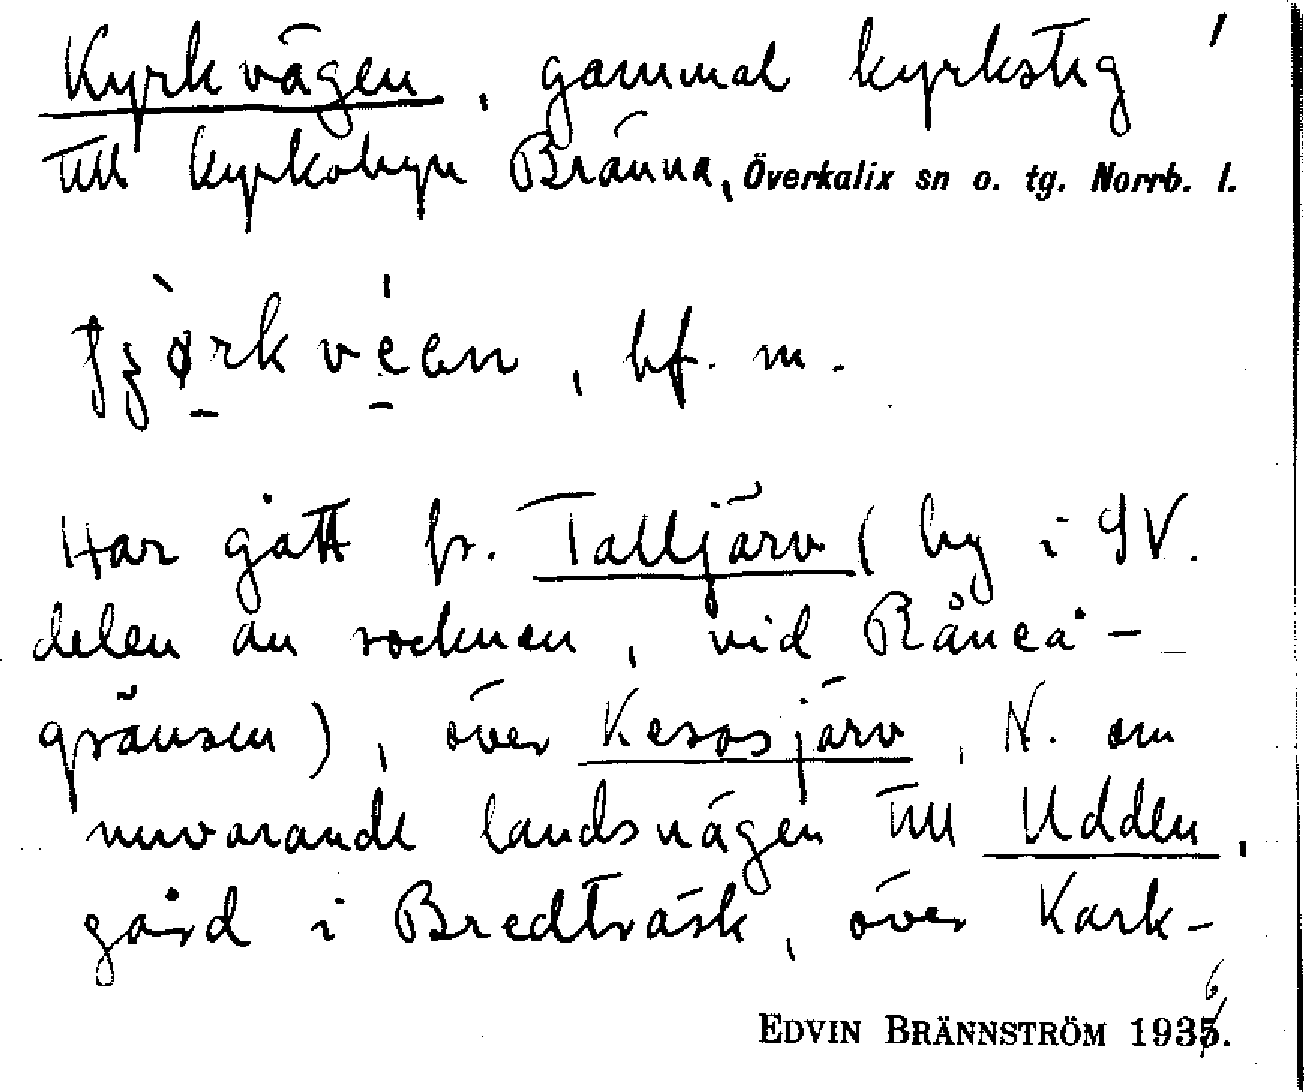 Kyrkvägen, gammal kyrkstig
till kyrkobyn Bränna, Överkalix sn o. tg. Norrb. l.
, bf. m.
Har gått fr. Talljärv (by i SV.
delen av socknen, vid Råneå-
gränsen), över Kesasjärv, N. om
nuvarande landsvägen till Udden,
gård i Bredträsk, över Kark-
EDVIN BRÄNNSTRÖM 1936.